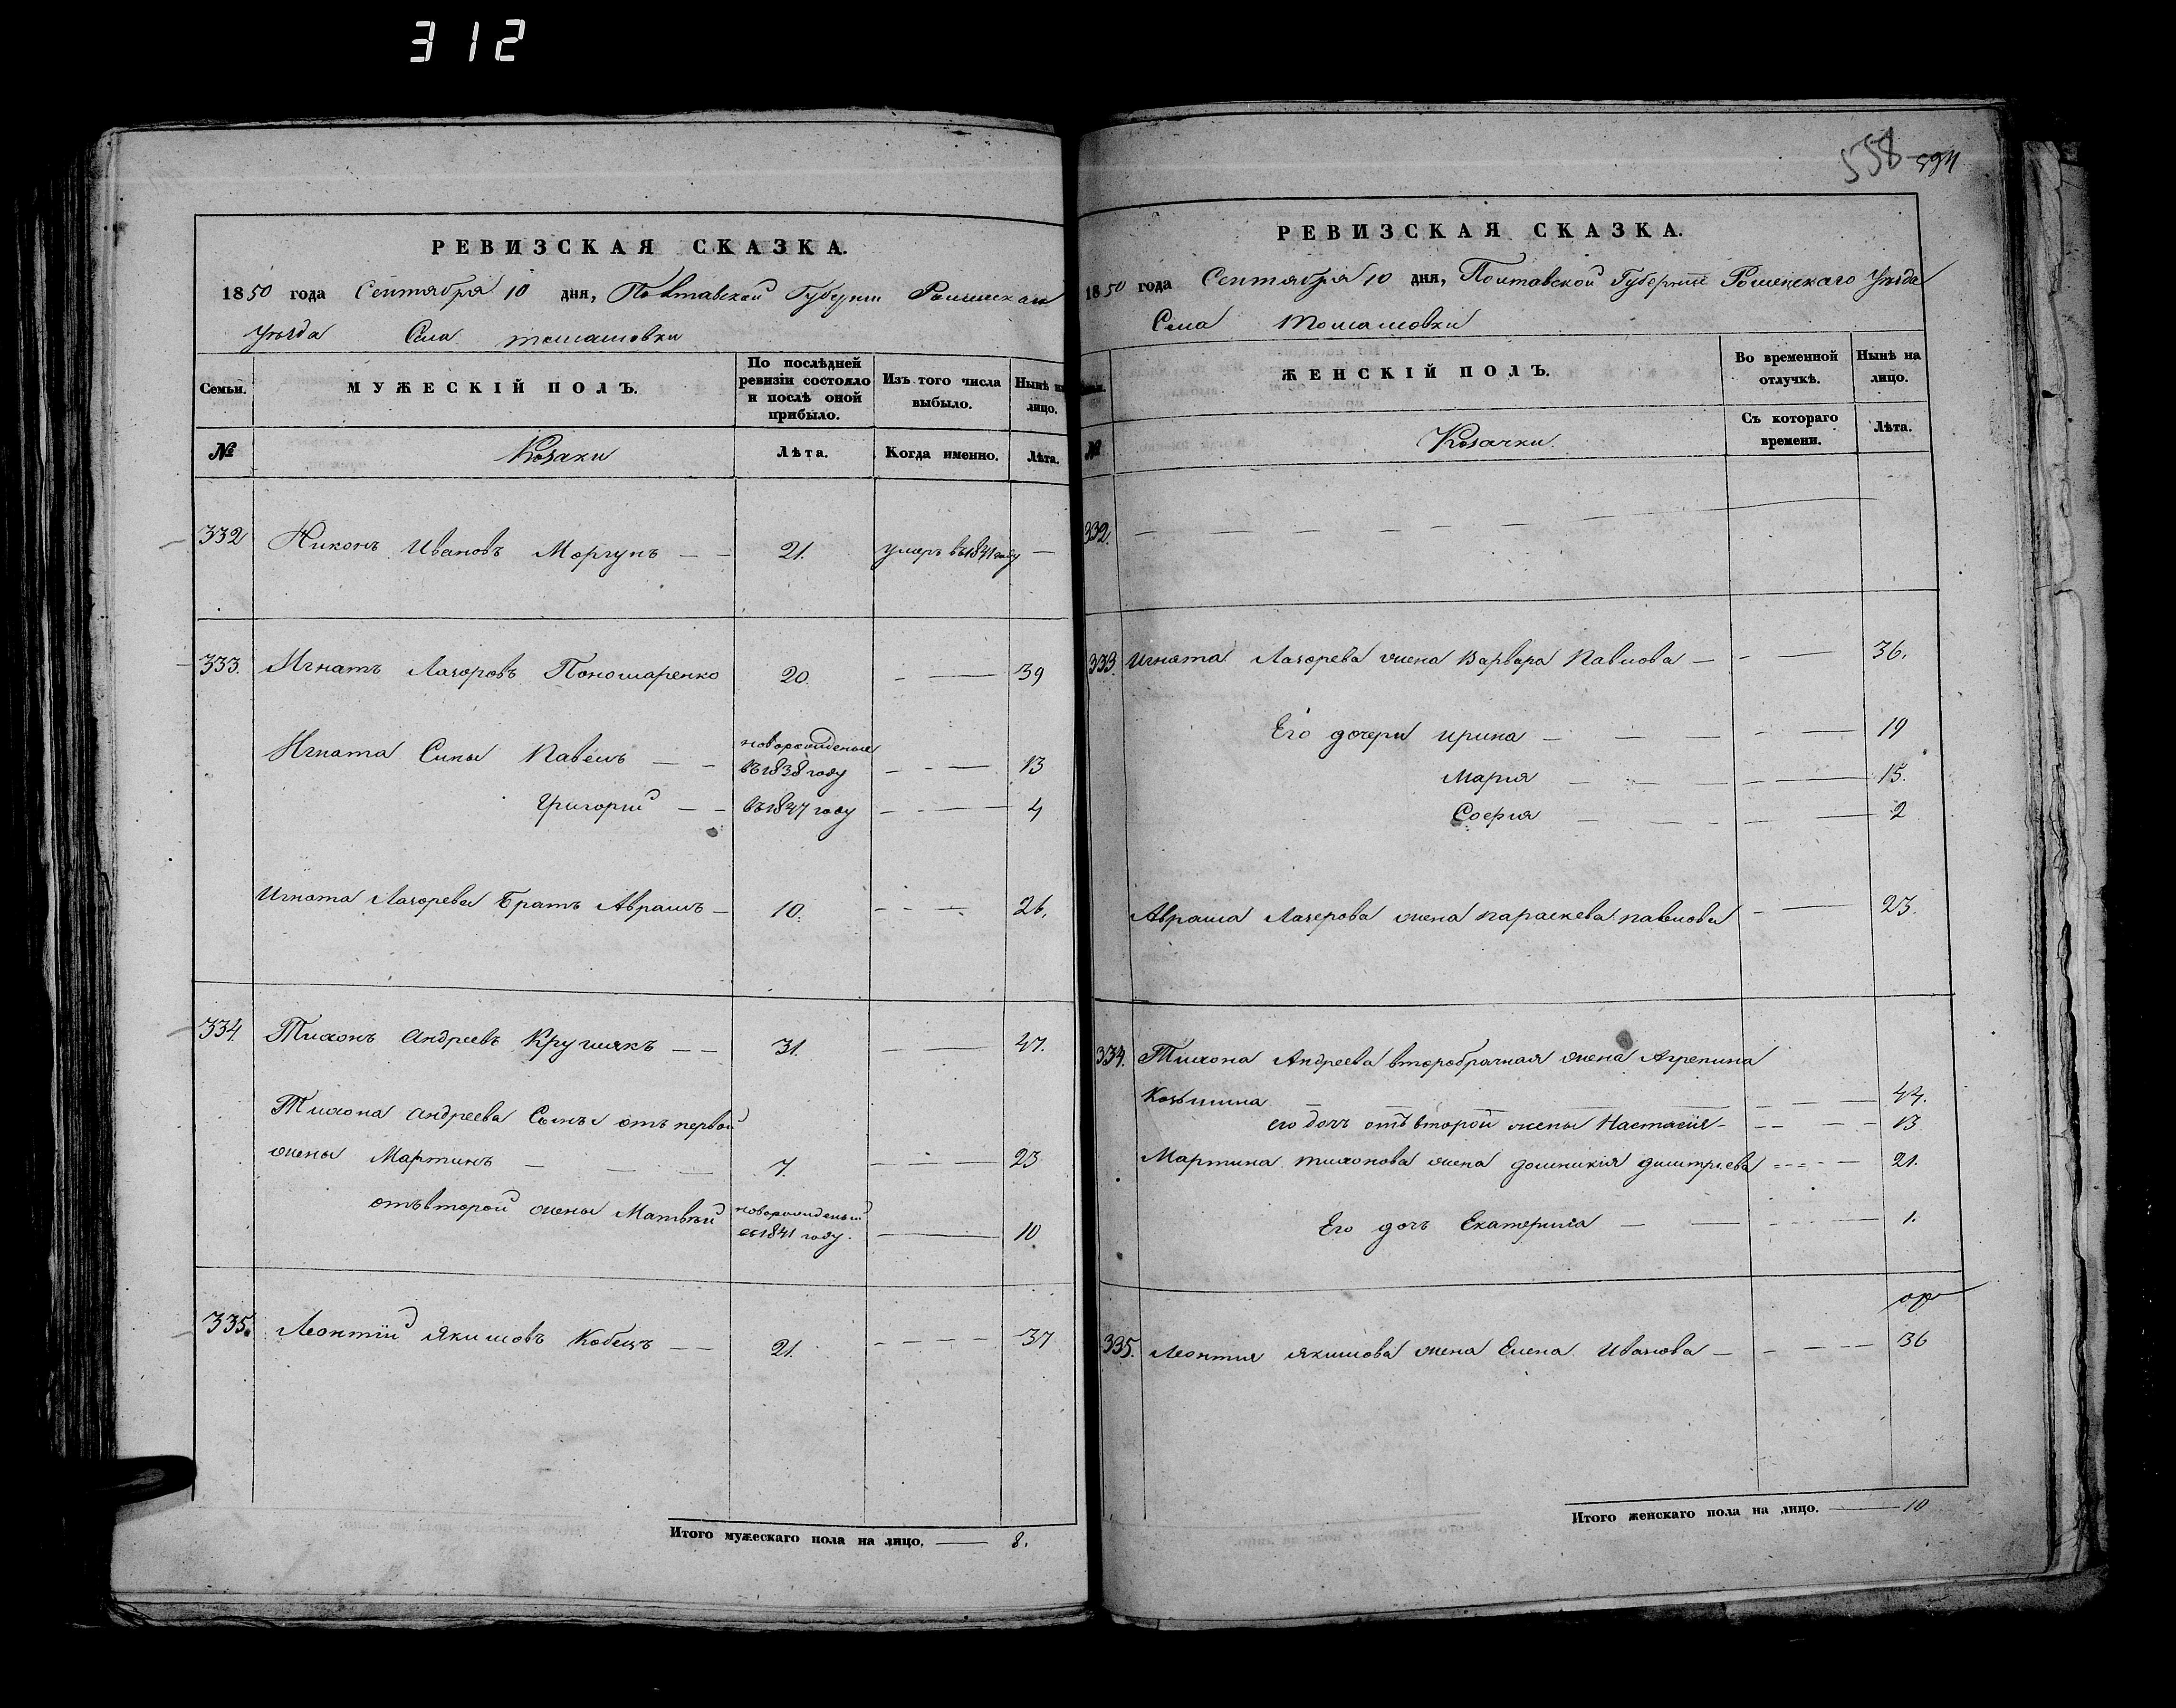 312
РЕВИЗСКАЯ СКАЗКА.
1850 года Сентября 10 дня, Полтавской Губерніи Роменскаго
Уѣзда Села Томашовки
Семьи. МУЖЕСКІЙ ПОЛЪ. По послѣдней ревизіи состояло и послѣ оной прибыло. Изъ того числа выбыло. Нынѣ на лицо.
№ Козаки Лѣта. Когда именно. Лѣта.
332 Никонъ Ивановъ Моргунъ — — 21. умеръ въ 1841 году —
333. Игнатъ Лазоровъ Пономаренко 20. - — 39
Игната Сины Павелъ — — новорожденые въ 1838 году — - — 13
Григорий — — въ 1847 году — - — 4
Игната Лазорева Братъ Аврамъ — 10. - - — 26.
334. Тихонъ Андреевъ Крушякъ — — 31. — — 47.
Тихона Андреева Сынъ отъ первой
жены Мартинъ — — — 7. — - — 23
отъ второй жены Матвѣй новорожденый въ 1841 году. — 10
335. Леонтій Якимовъ Кобецъ — — 21. - — — — 37
Итого мужескаго пола на лицо. — 8.
558 594
РЕВИЗСКАЯ СКАЗКА.
1850 года Сентября 10 дня, Полтавской Губерніи Роменскаго Уѣзда
Села Томашовки
ЖЕНСКІЙ ПОЛЪ. Во временной отлучкѣ. Нынѣ на лицо.
№ Козачки. Съ котораго времени. Лѣта.
332. — — — — — — —
333. Игната Лазорева жена Варвара Павлова — - — 36.
Его дочери Ирина — — — - — 19
Мария — — — - — 15.
София — — - — — 2
Аврама Лазорова жена Параскева Павлова - — 23.
334. Тихона Андреева второбрачная жена Агрепина
Козьмина — — — — 44.
его дочъ отъ второй жены Настасия - -- — - 13
Мартина Тихонова жена Домникия Дмитриева - - - — 21.
Его дочъ Екатерина — — - - - — 1.
335. Леонтия Якимова жена Елена Иванова — - — - — 36
Итого женскаго пола на лицо. — 10